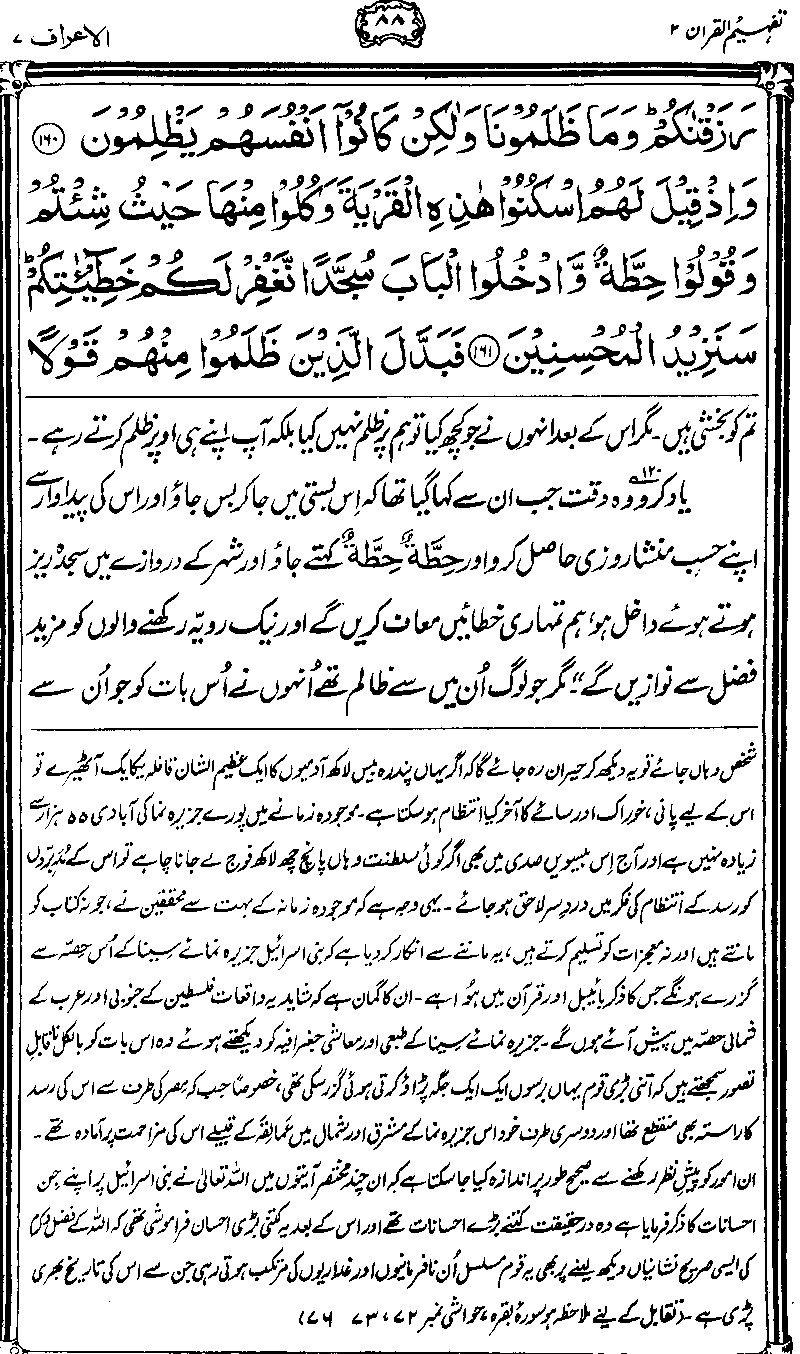 تفہیم القرآن ۲
۸۸
الاعراف ۷
رَزَقْنٰكُمْ ؕ وَمَا ظَلَمُوْنَا وَلٰكِنْ كَانُوْۤا اَنْفُسَهُمْ يَظْلِمُوْنَ ۝۱۶۰
وَاِذْ قِيْلَ لَهُمُ اسْكُنُوْا هٰذِهِ الْقَرْيَةَ وَكُلُوْا مِنْهَا حَيْثُ شِئْتُمْ
وَقُوْلُوْا حِطَّةٌ وَّادْخُلُوا الْبَابَ سُجَّدًا نَّغْفِرْ لَكُمْ خَطِيْٓـٰٔتِكُمْ ؕ
سَنَزِيْدُ الْمُحْسِنِيْنَ ۝۱۶۱ فَبَدَّلَ الَّذِيْنَ ظَلَمُوْا مِنْهُمْ قَوْلًا
تم کو بخشی ہیں۔ مگر اس کے بعد انہوں نے جو کچھ کیا تو ہم پر ظلم نہیں کیا بلکہ آپ اپنے ہی اوپر ظلم کرتے رہے۔
یاد کرو ۱۲۰؎ وہ وقت جب ان سے کہا گیا تھا کہ اِس بستی میں جا کر بس جاؤ اور اس کی پیداوار سے
اپنے حسبِ منشا روزی حاصل کرو اور حِطَّةٌ حِطَّةٌ کہتے جاؤ اور شہر کے دروازے میں سجدہ ریز
ہوتے ہوئے داخل ہو، ہم تمہاری خطائیں معاف کریں گے اور نیک رویہ رکھنے والوں کو مزید
فضل سے نوازیں گے"۔ مگر جو لوگ اُن میں سے ظالم تھے اُنہوں نے اُس بات کو جو اُن سے
شخص وہاں جائے تو یہ دیکھ کر حیران رہ جائے گا کہ اگر یہاں پندرہ بیس لاکھ آدمیوں کا ایک عظیم الشان قافلہ یکایک آ ٹھیرے تو
اس کے لیے پانی، خوراک اور سائے کا آخر کیا انتظام ہو سکتا ہے۔ موجودہ زمانے میں پورے جزیرہ نما کی آبادی ۵۵ ہزار سے
زیادہ نہیں ہے اور آج اِس بیسویں صدی میں بھی اگر کوئی سلطنت وہاں پانچ چھ لاکھ فوج لے جانا چاہے تو اس کے مُدبّروں
کو رسد کے انتظام کی فکر میں دردِ سر لاحق ہو جائے۔ یہی وجہ ہے کہ موجودہ زمانہ کے بہت سے محققین نے، جو نہ کتاب کو
مانتے ہیں اور نہ معجزات کو تسلیم کرتے ہیں، یہ ماننے سے انکار کر دیا ہے کہ بنی اسرائیل جزیرہ نمائے سینا کے اُس حصّہ سے
گزرے ہونگے جس کا ذکر بائیبل اور قرآن میں ہُوا ہے۔ ان کا گمان ہے کہ شاید یہ واقعات فلسطین کے جنوبی اور عرب کے
شمالی حصّہ میں پیش آئے ہوں گے۔ جزیرہ نمائے سینا کے طبعی اور معاشی جغرافیہ کو دیکھتے ہوئے وہ اس بات کو بالکل ناقابلِ
تصور سمجھتے ہیں کہ اتنی بڑی قوم یہاں برسوں ایک ایک جگہ پڑاؤ کرتی ہوئی گزر سکی تھی، خصوصاً جب کہ مصر کی طرف سے اس کی رسد
کا راستہ بھی منقطع تھا اور دوسری طرف خود اس جزیرہ نما کے مشرق اور شمال میں عمالِقہ کے قبیلے اس کی مزاحمت پر آمادہ تھے۔
ان امور کو پیشِ نظر رکھنے سے صحیح طور پر اندازہ کیا جا سکتا ہے کہ ان چند مختصر آیتوں میں اللہ تعالیٰ نے بنی اسرائیل پر اپنے جن
احسانات کا ذکر فرمایا ہے وہ درحقیقت کتنے بڑے احسانات تھے اور اس کے بعد یہ کتنی بڑی احسان فراموشی تھی کہ اللہ کے فضل و کرم
کی ایسی صریح نشانیاں دیکھ لینے پر بھی یہ قوم مسلسل اُن نافرمانیوں اور غداریوں کی مرتکب ہوتی رہی جن سے اس کی تاریخ بھری
پڑی ہے۔ (تقابل کے لیے ملاحظہ ہو سورہ بقرہ، حواشی نمبر ۷۲، ۷۳ ۷۶)